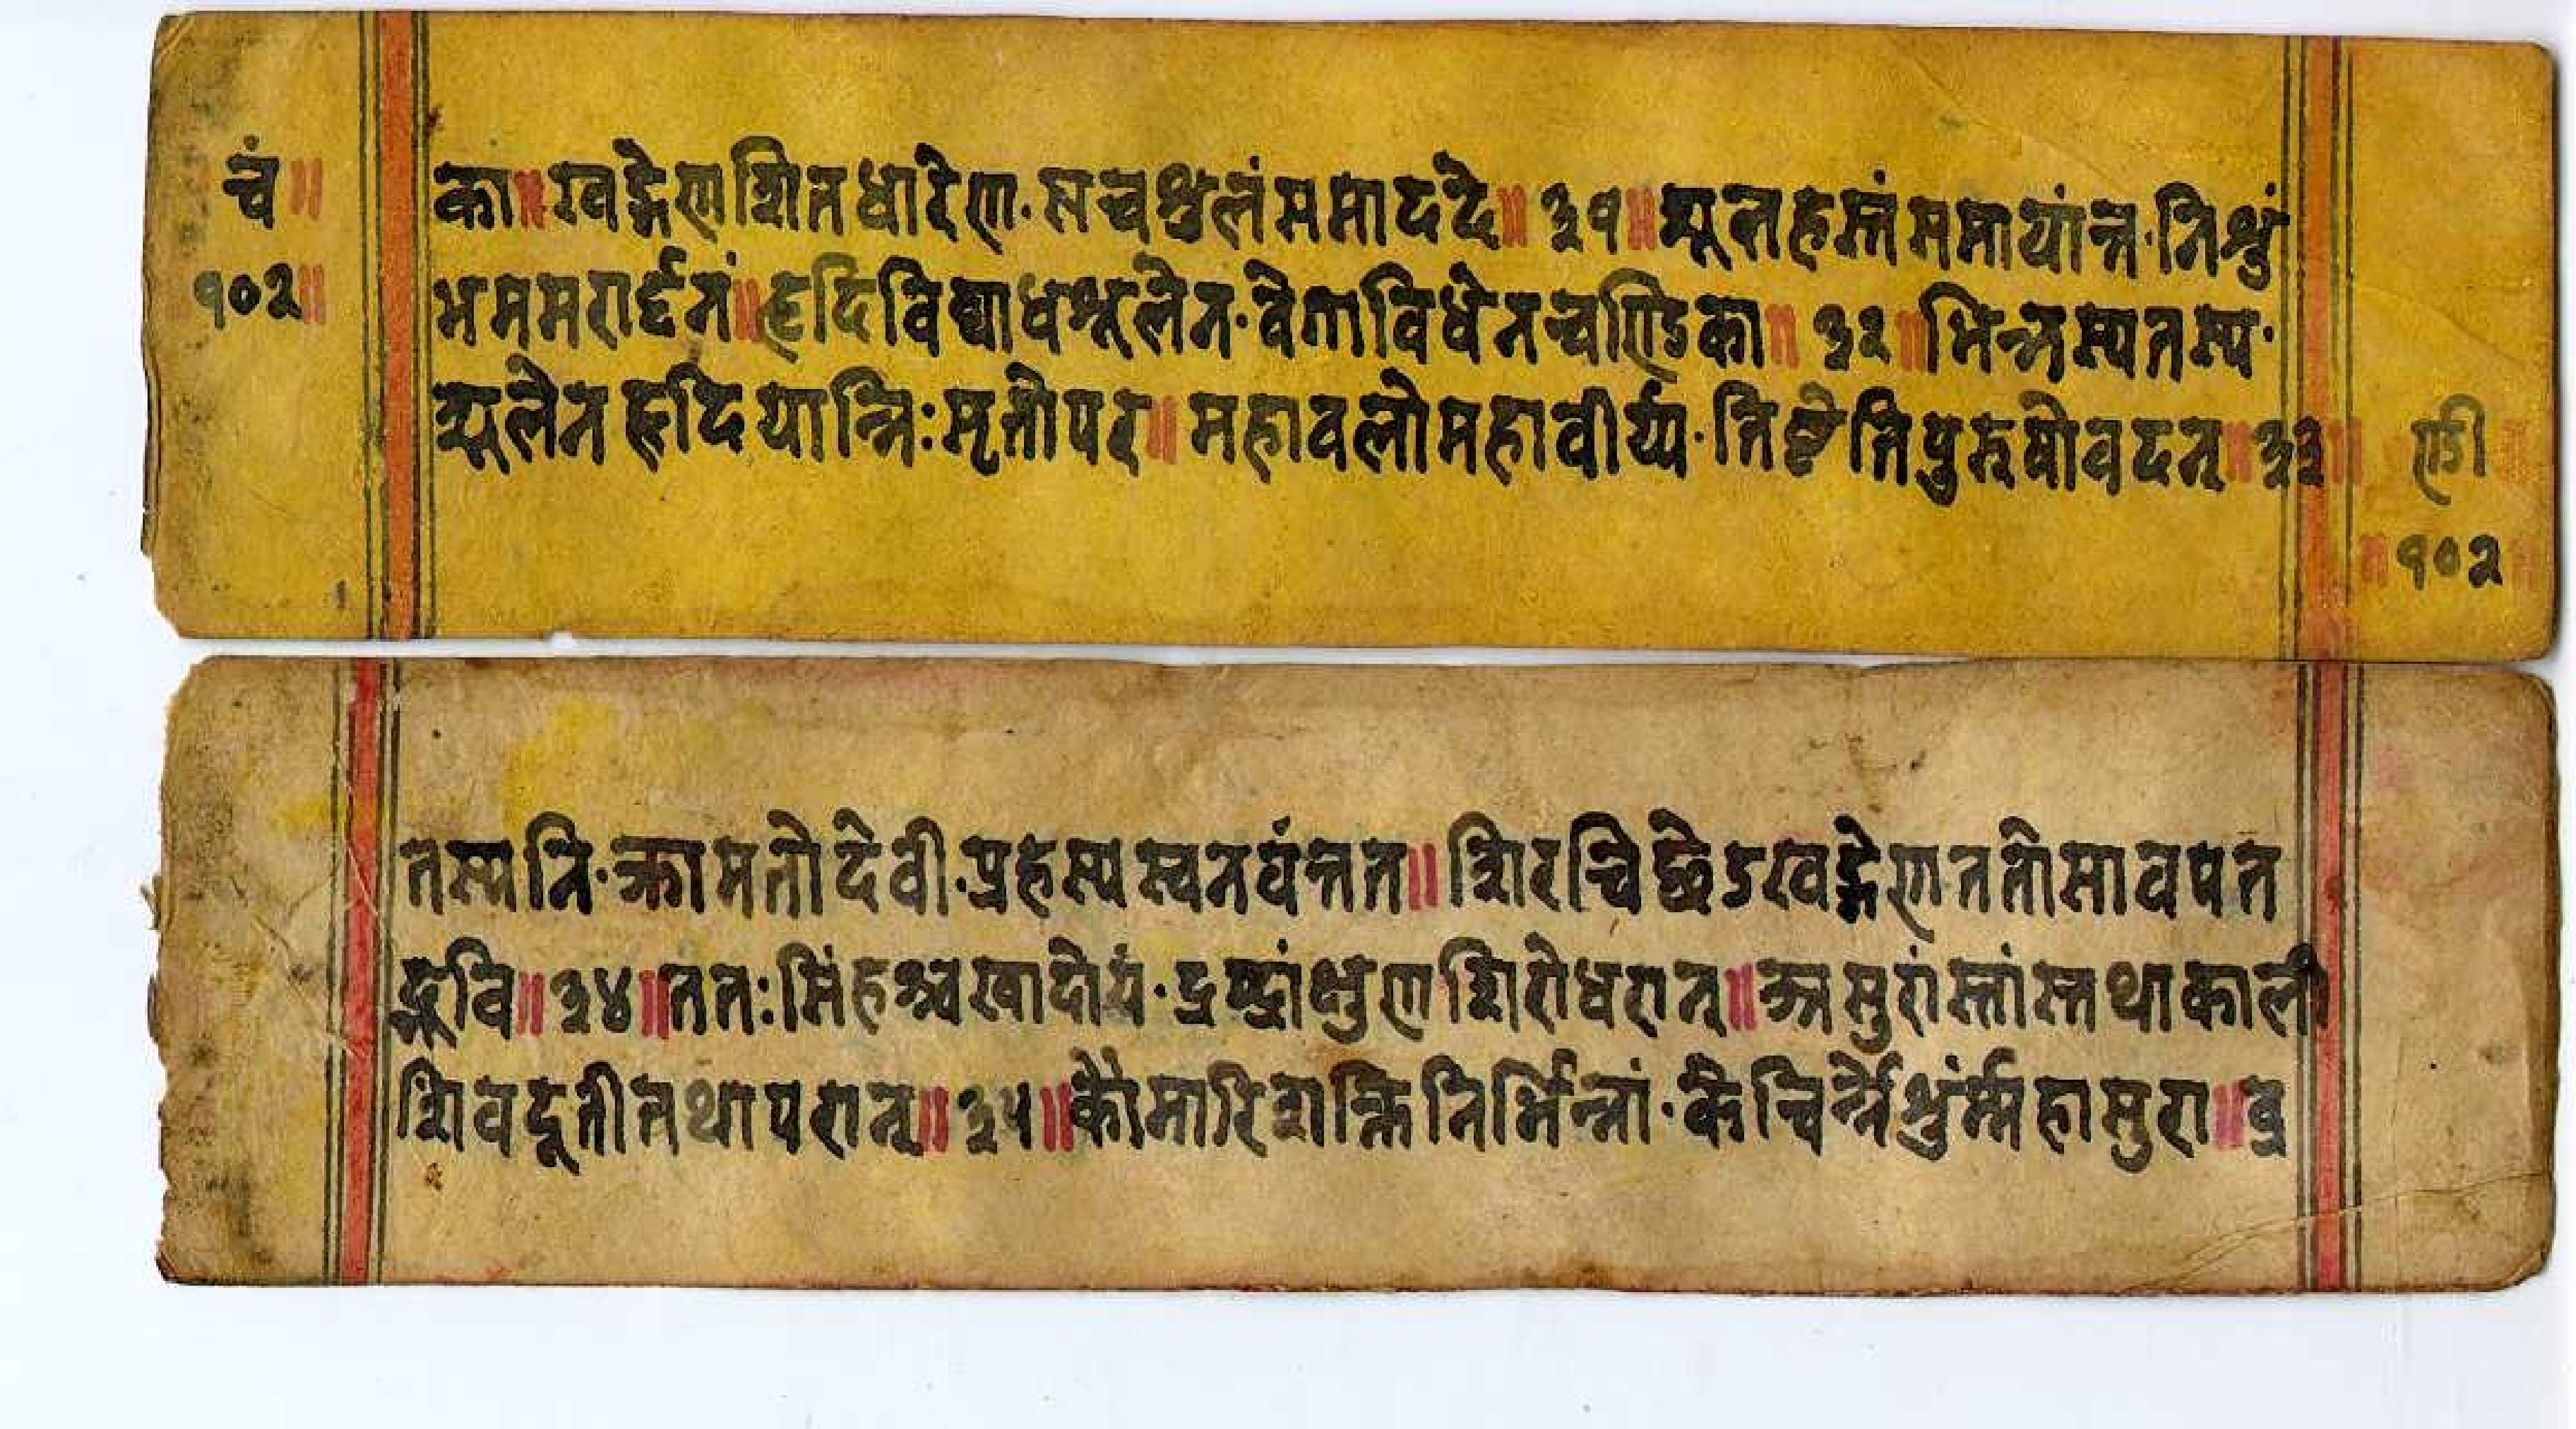 चं॥
१०२॥
का॥खड्गेणशितधारेण·सचशुलंसमाददे॥३१॥शूलहस्तंसमायांन्त·निशुं
भममरार्द्दनं॥हृदिविव्याधशूलेन·वेगाविधेनचण्डिका॥३२॥भिन्नस्यतस्य·
शूलेनहृदियान्निःसृतोपर॥महावलोमहावीर्य्य·तिष्ठेतिपुरूषोवदन्॥३३॥
ण्डी॥
॥१०२॥
तस्यनि·क्रामतोदेवी·प्रहस्यस्वनवंत्तत॥शिरश्चिछेडखड्गेणततोसावपत
द्भूवि॥३४॥ततःसिंहश्चखादोयं·द्रष्ट्रांक्षुणशिरोधरान्॥असुरांस्तांस्तथाकाली
शिवदूतीतथापरान्॥३५॥कौमारिशक्तिनिर्भिन्नां·केचिर्न्नेशुंर्म्महासुरा॥ब्र